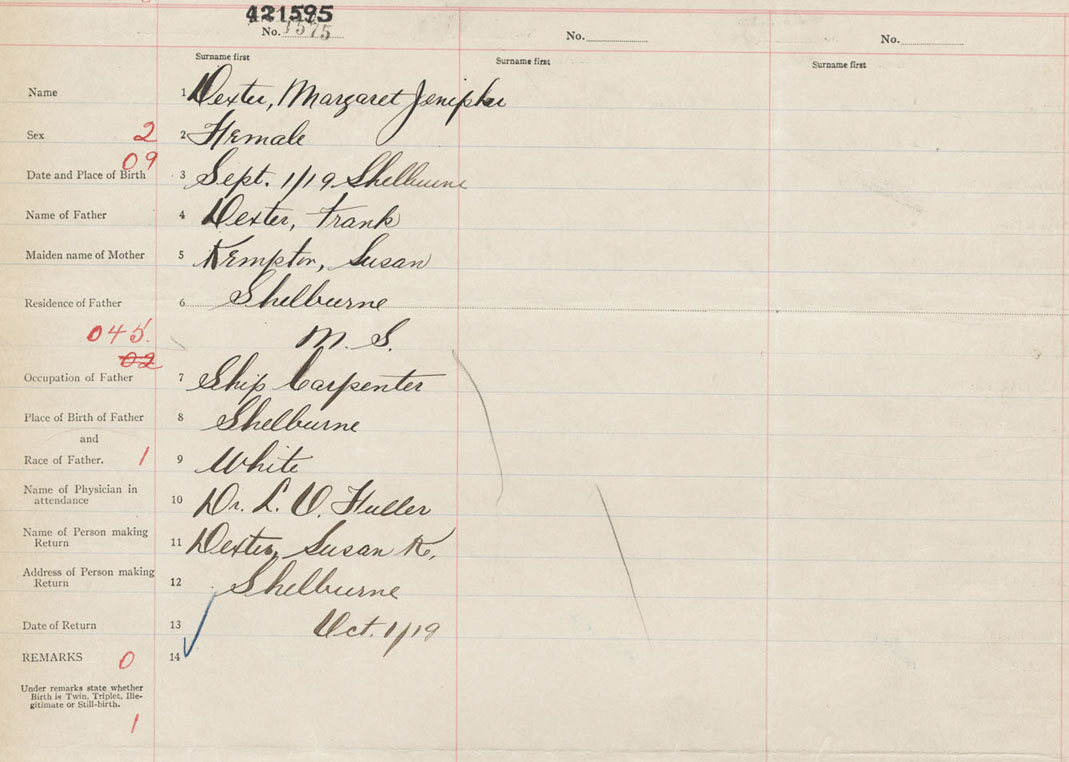 421595
No. 1575 No. No.
Surname first Surname first Surname first
Name 1 Dexter, Margaret Jenipher
Sex 2 2 Female
09
Date and Place of Birth 3 Sept. 1/19 Shelburne
Name of Father 4 Dexter, Frank
Maiden name of Mother 5 Kempton, Susan
Residence of Father 6 Shelburne
045. N. S.
02
Occupation of Father 7 Ship Carpenter
Place of Birth of Father 8 Shelburne
and
Race of Father. 1 9 White
Name of Physician in
attendance 10 Dr. L. O. Fuller
Name of Person making
Return 11 Dexter, Susan K.,
Address of Person making
Return 12 Shelburne
Date of Return 13 Oct. 1/19
REMARKS 0 14
Under remarks state whether
Birth is Twin, Triplet, Ille-
gitimate or Still-birth.
1